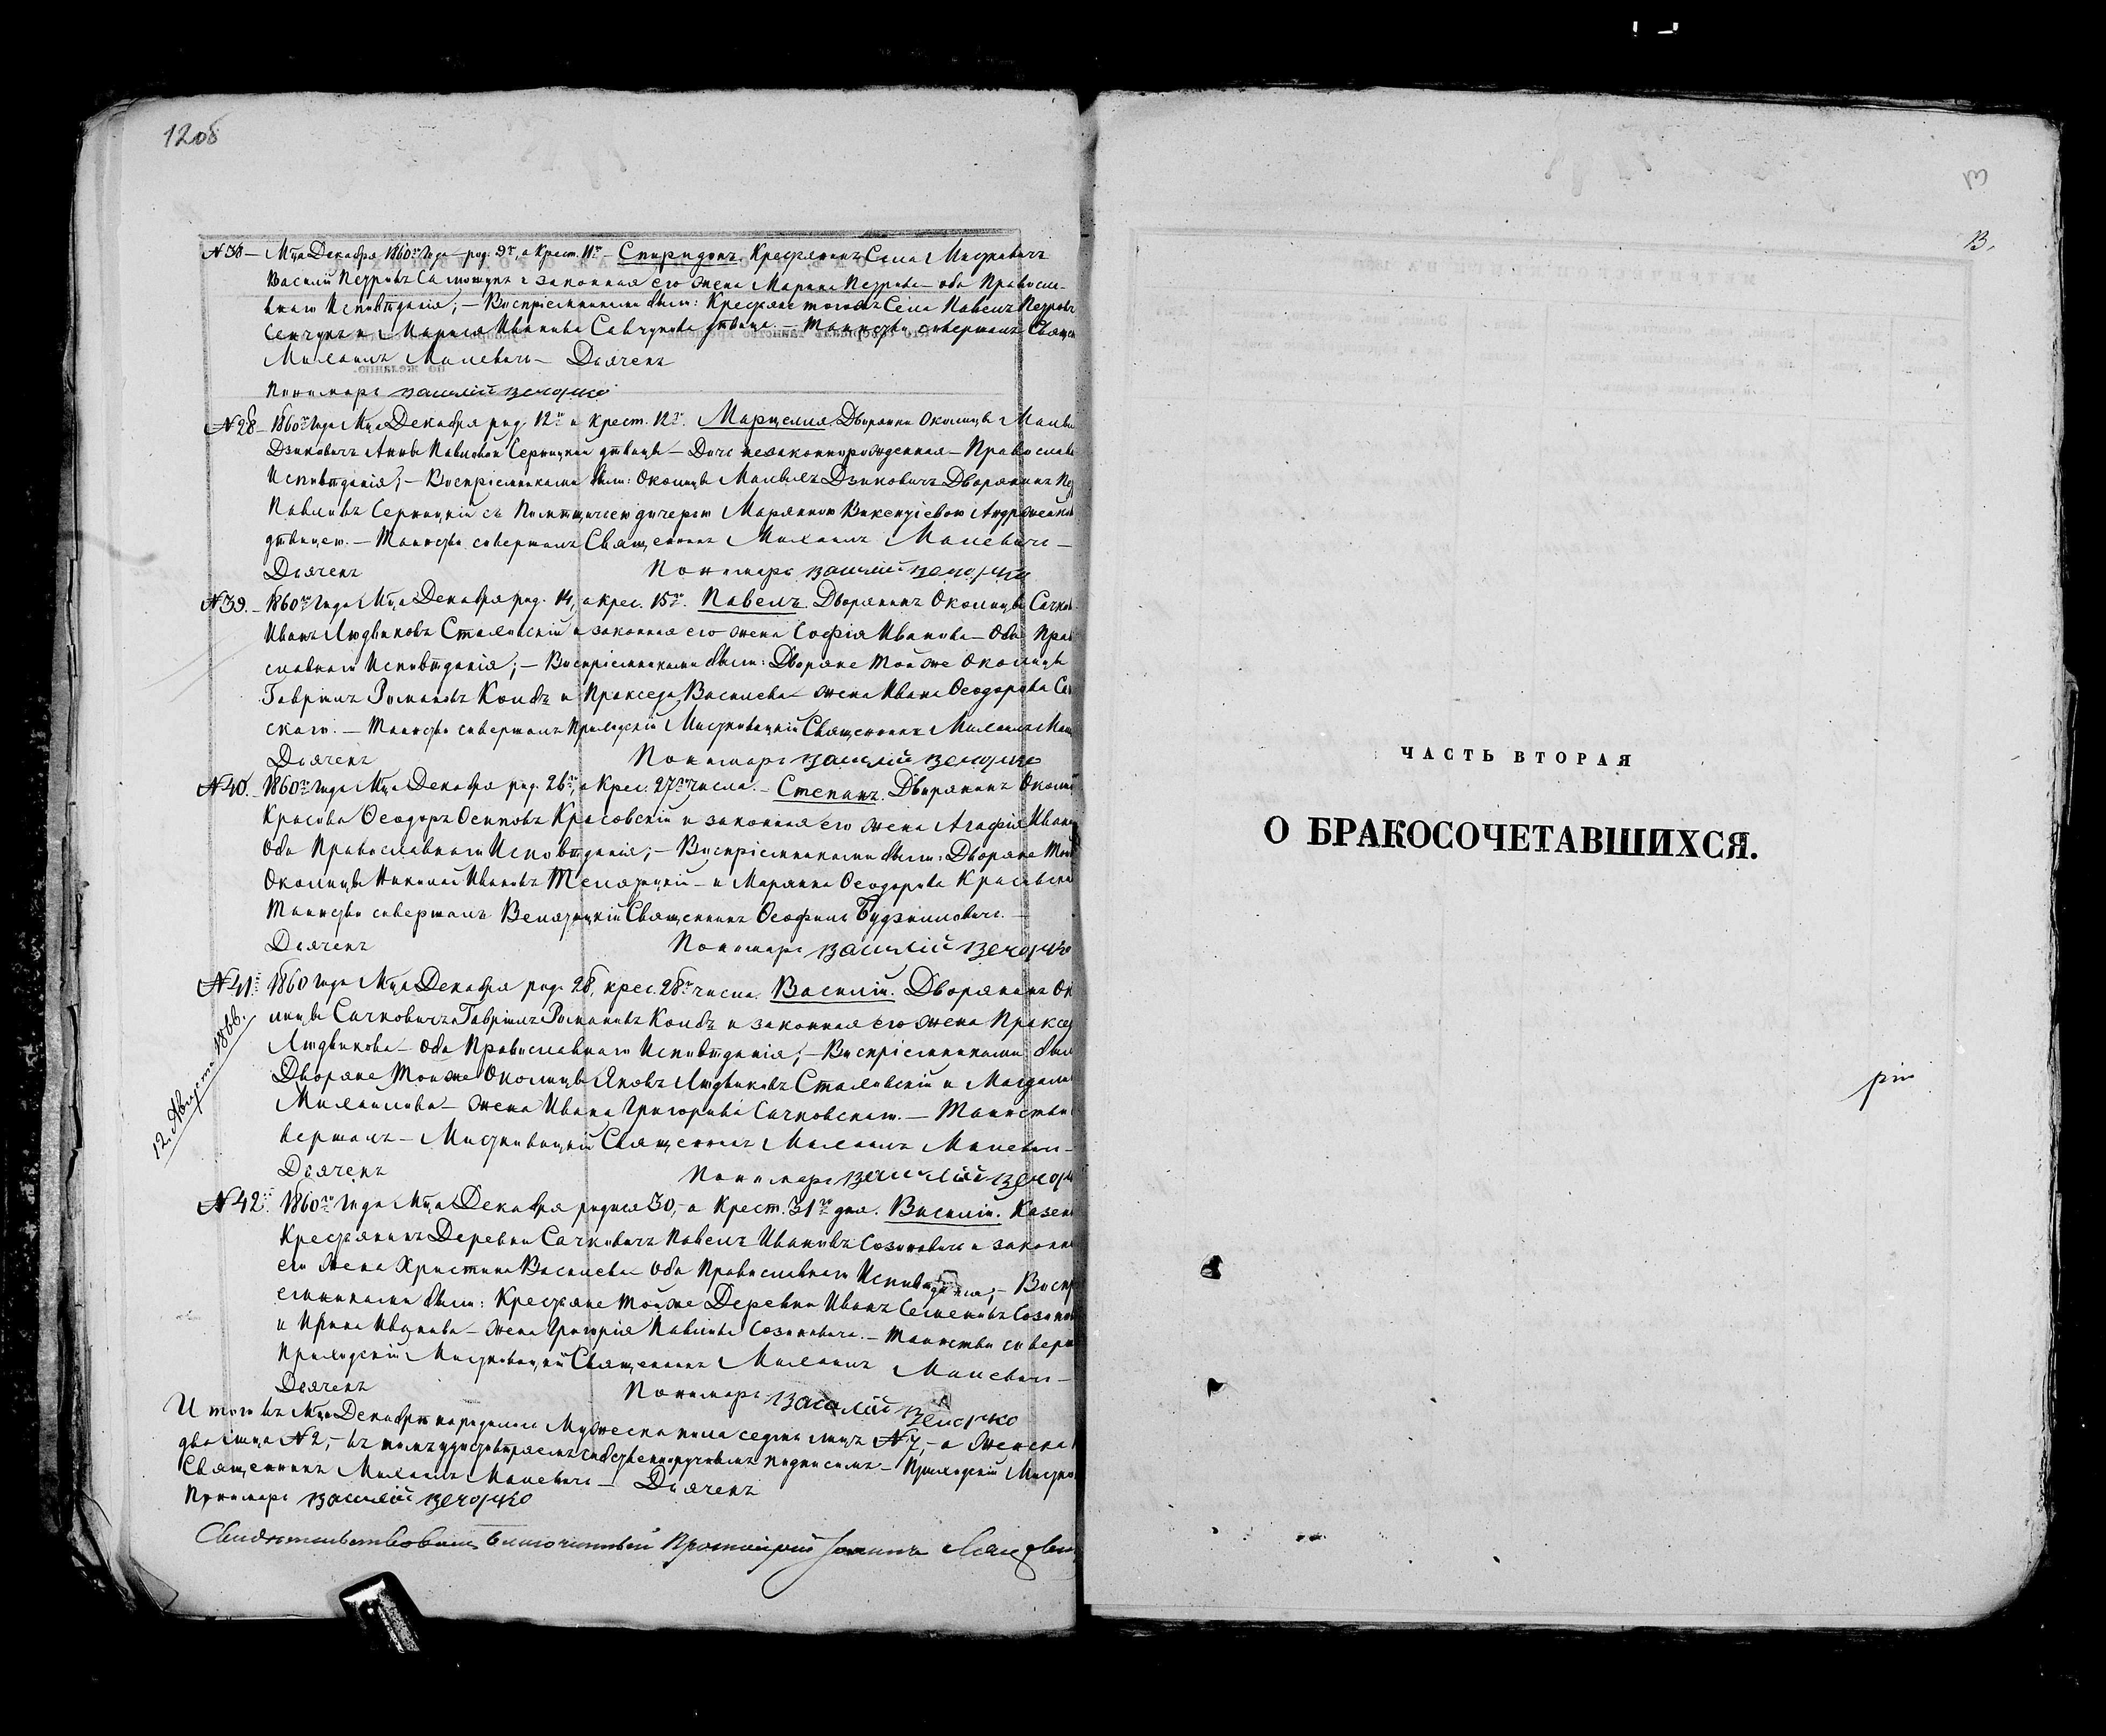 12об
№38 – Мца Декабря 1860го Года – род. 9го, а Крест. 11го – Спиридонъ. Крестьянинъ Села
Василій Петровъ и законная его жена Марина Петрова – оба Правосла-
внаго Исповѣданія; – Воспріемниками были: Крестьяне того же Села Павелъ Петровъ
и Марія Иванова дѣвица. – Таинство совершалъ Свящ
Михаилъ Малевичъ – Дьячекъ
Пономарь Василій Вечорко
№28 – 1860го Года Мца Декабря род. 12го и Крест. 12го. Марцелия. Дворянки Околицы
Дзиковичъ Анны Павловой Серницкой дѣвицы – Дочь незаконнорожденная – Православ
Исповѣданія; – Воспріемниками были: Околицы Дзиковичъ Дворянинъ
Павловъ Серницкій съ дочерью Марянною Викентіевою
дѣвицею. – Таинство совершалъ Священникъ Михаилъ Малевичъ –
Дьячекъ Пономарь Василій Вечорко
№39. – 1860го Года Мца Декабря род. 14, а крес. 15го. Павелъ. Дворянинъ Околицы Сачков
Иванъ Людвиковъ Сталевскій и законная его жена Софія Иванова – Оба Прав
славнаго Исповѣданія; – Воспріемниками были: Дворяне той же Околицы
Гавріилъ Романовъ Колбъ и Пракседа Васильева – жена Ивана Ѳеодорова Са
скаго. – Таинство совершалъ Приходскій Мистковицкій Священникъ Михаилъ Мал
Дьячекъ Пономарь Василій Вечорко
№40. – 1860го Года Мца Декабря род. 26го, а Крес. 27го числа. – Степанъ. Дворянинъ Околи
Красова Ѳеодоръ Осиповъ Красовскій и законная его жена Агафія Иван
Оба Православнаго Исповѣданія; – Воспріемниками были: Дворяне той
Околицы Николай Ивановъ – и Марянна Ѳеодорова Красовска
Таинство совершалъ Священникъ Ѳеофилъ –
Дьячекъ Пономарь Василій Вечорко
№41. 1860 Года Мца Декабря род. 28, крес. 28го числа. Василій. Дворянинъ Ок
лицы Сачковичъ Гавріилъ Романовъ Колбъ и законная его жена Праксед
Людвикова – Оба Православнаго Исповѣданія; – Воспріемниками был
Дворяне той же Околицы Яковъ Людвиковъ Сталевскій и Магдали
Михайлова – жена Ивана Григорьева Сачковскаго. – Таинство
вершалъ – Мистковицкій Священникъ Михаилъ Малевич –
Дьячекъ Пономарь Василій Вечор
12. Августа 1866.
№42. 1860го Года Мца Декабря родися 30, – а Крест. 31го дня. Василій. Казен
Крестьянинъ Деревни Сачковичъ Павелъ Ивановъ Созоновичъ и законна
его жена Христина Васильева – Оба Православнаго Исповѣданія; – Воспр
емниками были: Крестьяне той же Деревни Иванъ Семеновъ Созонов
и Ирина Иванова – жена Григорія Павлова Созоновича. – Таинство соверш
Приходскій Мистковицкій Священникъ Михаилъ Малевич –
Дьячекъ Пономарь Василій Вечорко
Итого въ Мцѣ Декабрѣ народилось Мужеска пола седмь лицъ № 7, – а Женска
два лица № 2, – въ чемъ удостовѣряемъ собственноручнымъ подписомъ – Приходскій
Священникъ Михаилъ Малевичъ – Дьячекъ
Пономарь Василій Вечорко
Свидѣтельствовалъ Благочинный Протоіерей Іоаннъ
13.
ЧАСТЬ ВТОРАЯ
О БРАКОСОЧЕТАВШИХСЯ.